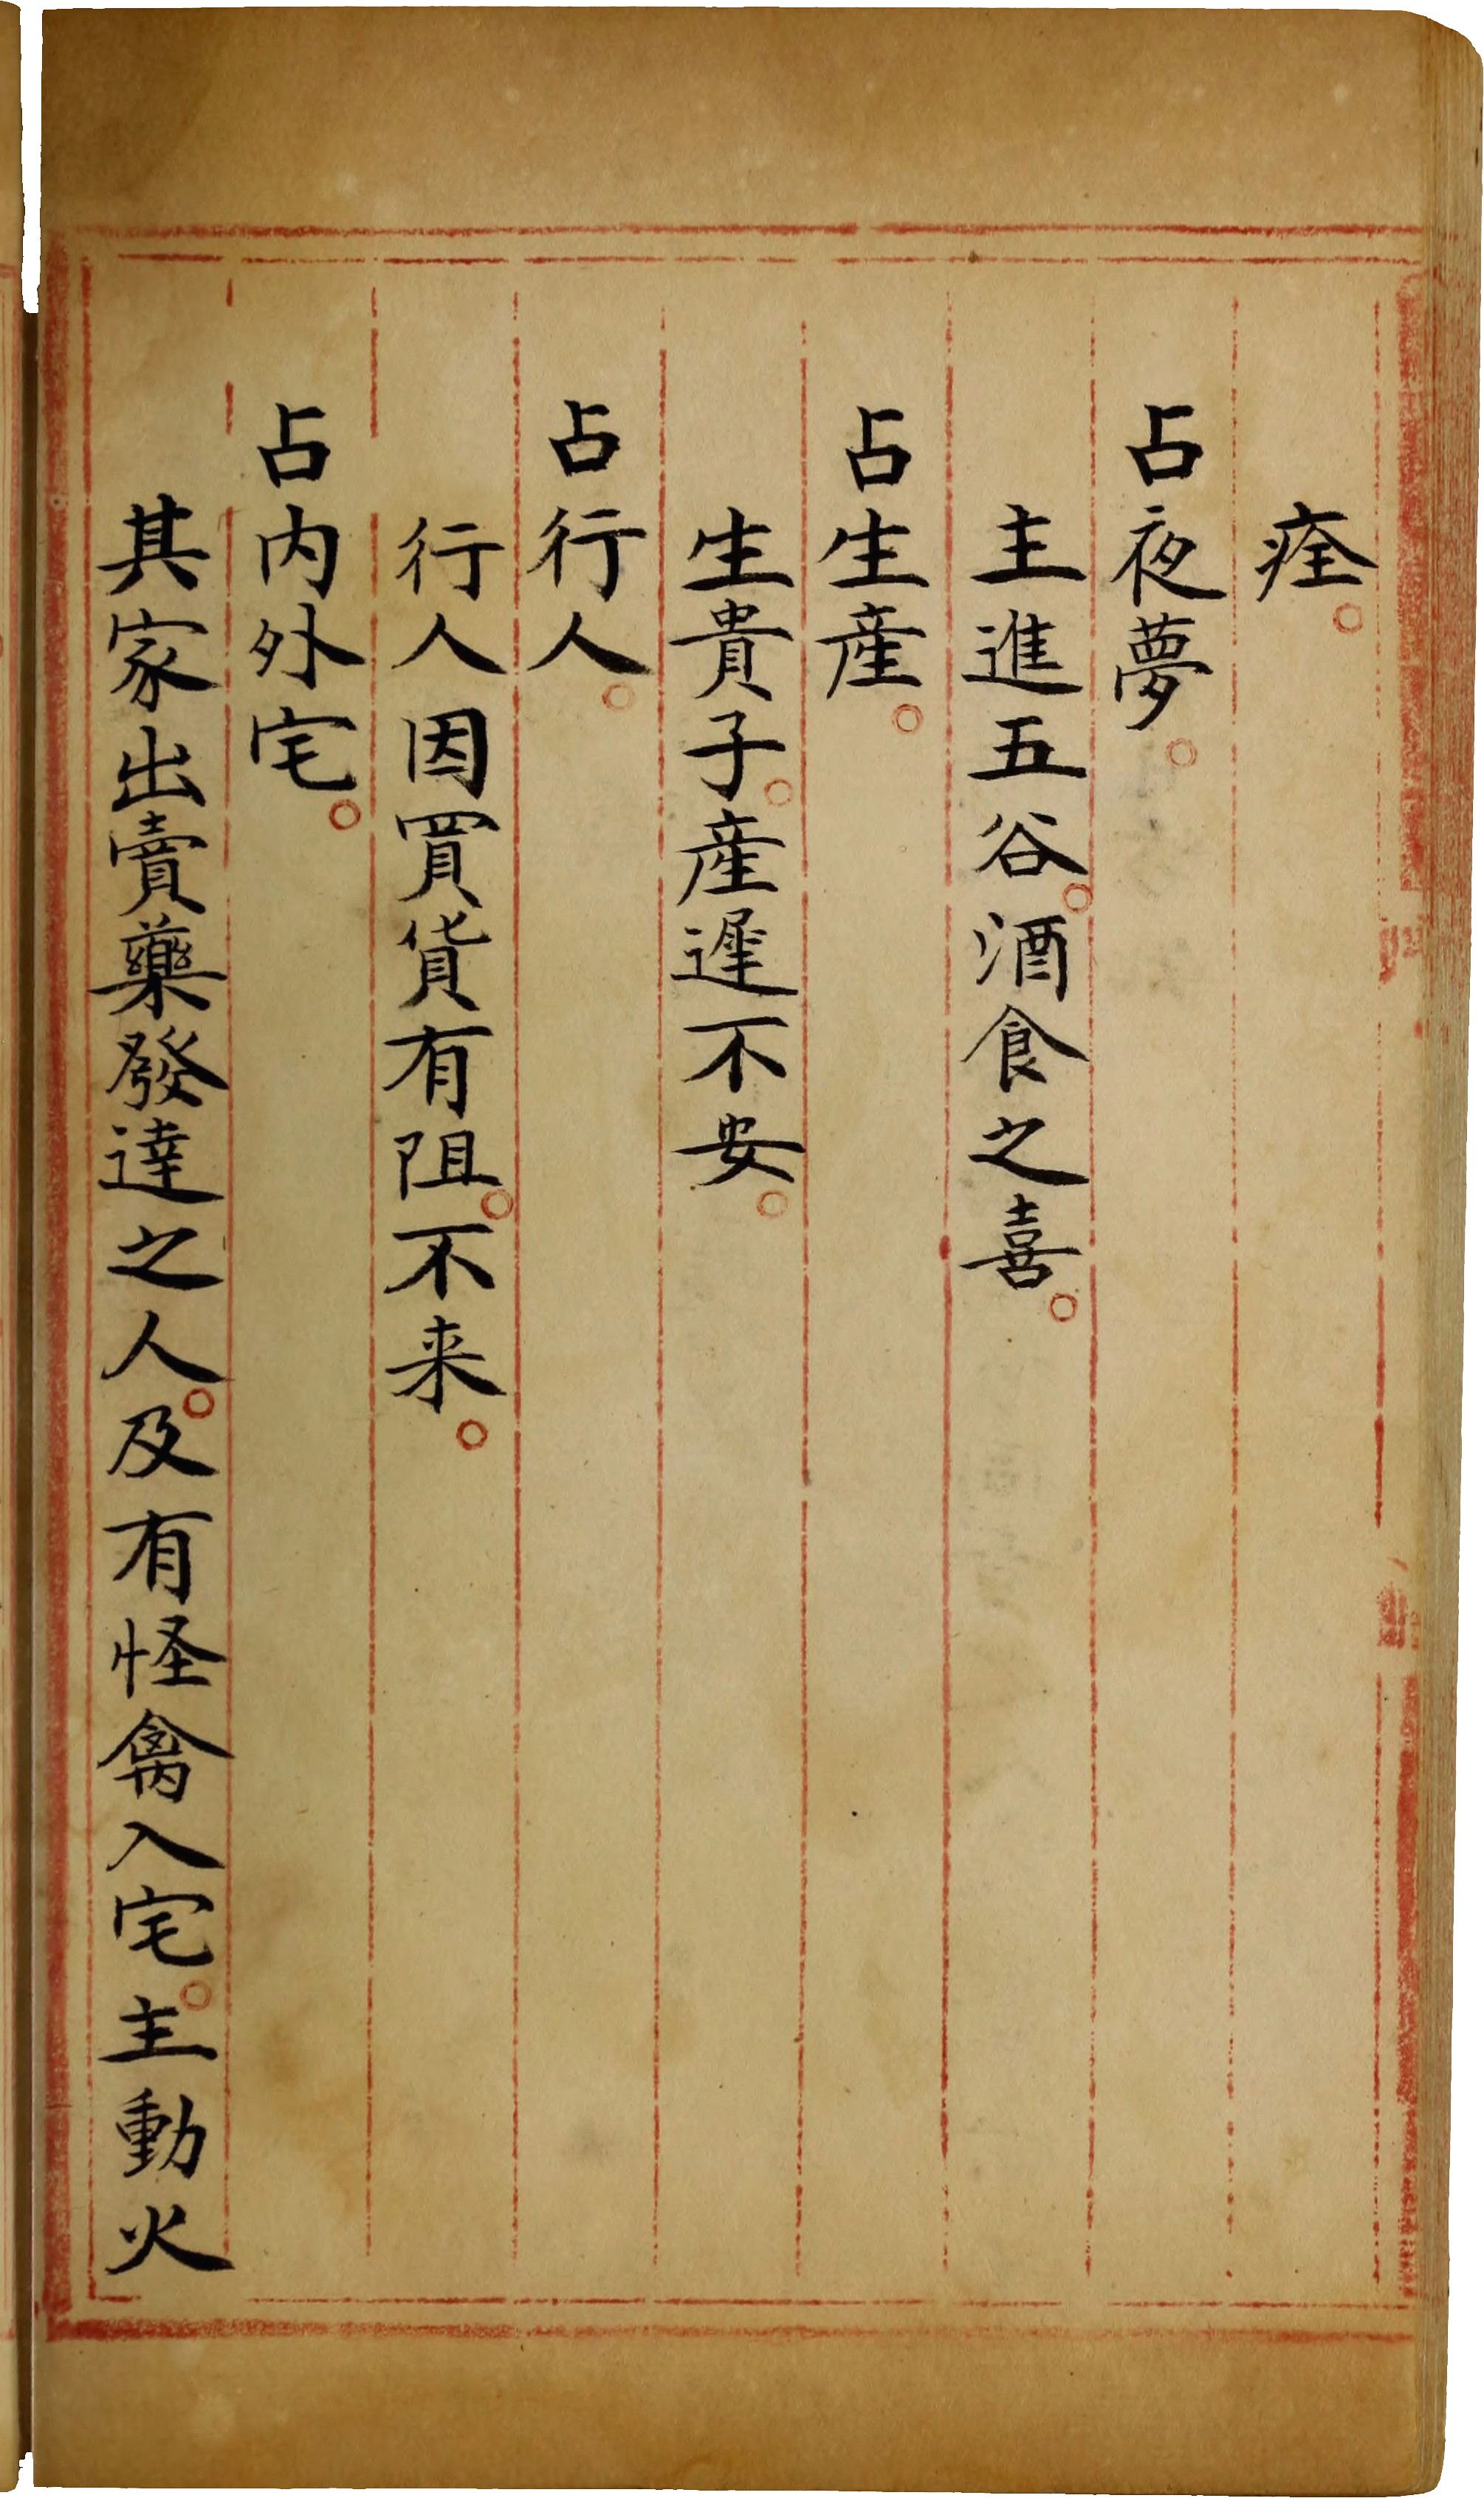 痊。
占夜夢。
主進五谷。酒食之喜。
占生産。
生貴子。産遲不安。
占行人。
行人因買貨有阻。不来。
占内外宅。
其家出賣藥發達之人。及有怪禽入宅。主動火